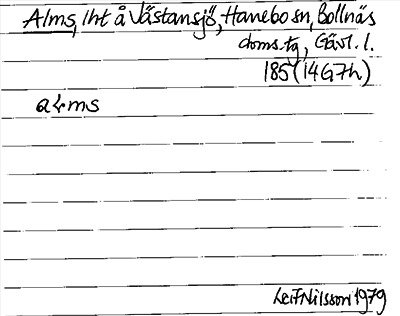 Alms, lht å Västansjö, Hanebo sn, Bollnäs
doms.tg, Gävl. l.
185 (14G7h)
almss
Leif Nilsson 1979